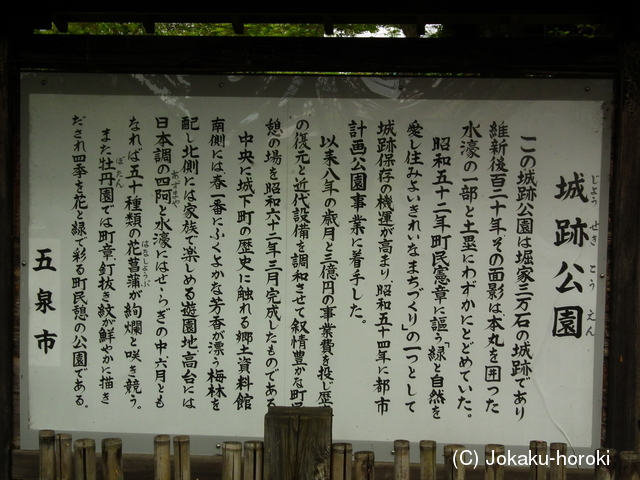 城跡公園
じょうせきこうえん
この城跡公園は堀家三万石の城跡であり
維新後百二十年その面影は、本丸を囲った
水濠の一部と土塁にわずかにとどめていた。
昭和五十二年町民憲章に謳う「緑と自然を
愛し住みよいきれいなまちづくり」の一つとして
城跡保存の機運が高まり、昭和五十四年に都市
計画公園事業に着手した。
以来八年の歳月と三億円の事業費を投じ歴
の復元と近代設備を調和させて叙情豊かな町
憩の場を昭和六十二年三月完成したものである
中央に城下町の歴史に触れる郷土資料館
南側には、春一番にふくよかな芳香が漂う梅林を
配し北側には家族で楽しめる遊園地高台には
日本調の四阿と水濠にはせゝらぎの中六月とも
あずまや
なれば五十種類の花菖蒲が絢爛と咲き競う。
はなしょうぶ
また牡丹園では町章、釘抜き紋が鮮やかに描き
ぼたん
だされ四季を花と緑で彩る町民憩の公園である。
五泉市
(C) Jokaku-horoki